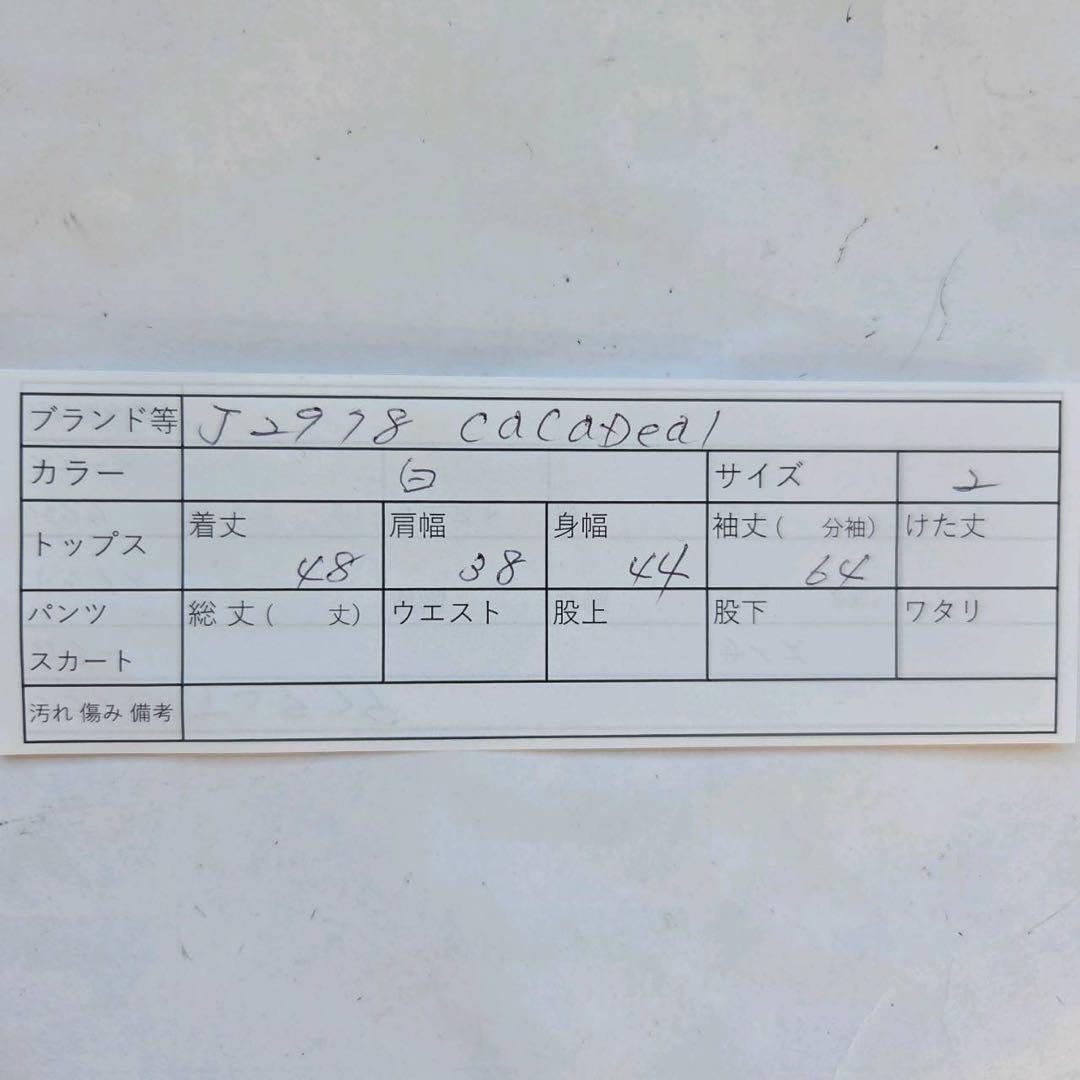 ブランド等 J2978 CaCaDeal
カラー 白 サイズ 2
トップス 着丈 48 肩幅 38 身幅 44 袖丈( 分袖) 64 けた丈
パンツ スカート 総丈( 丈) ウエスト 股上 股下 ワタリ
汚れ 傷み 備考